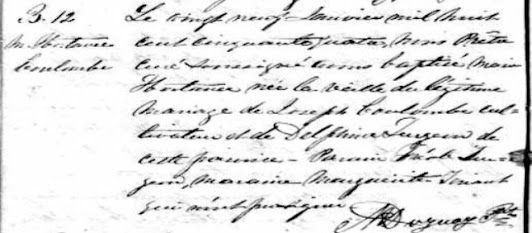 B. 12
M. Hortance
Coulombe
Le vingt neuf Janvier mil huit
cent cinquante quatre, nous Prêtre
Curé soussigné avons baptisé Marie
Hortance née la veille du légitime
mariage de Joseph Coulombe cul-
tivateur et de Delphine Turgeon de
cette paroisse - Parain Tur-
geon, maraine Marguerite
qui n'ont pu signer
Duguay Ptre